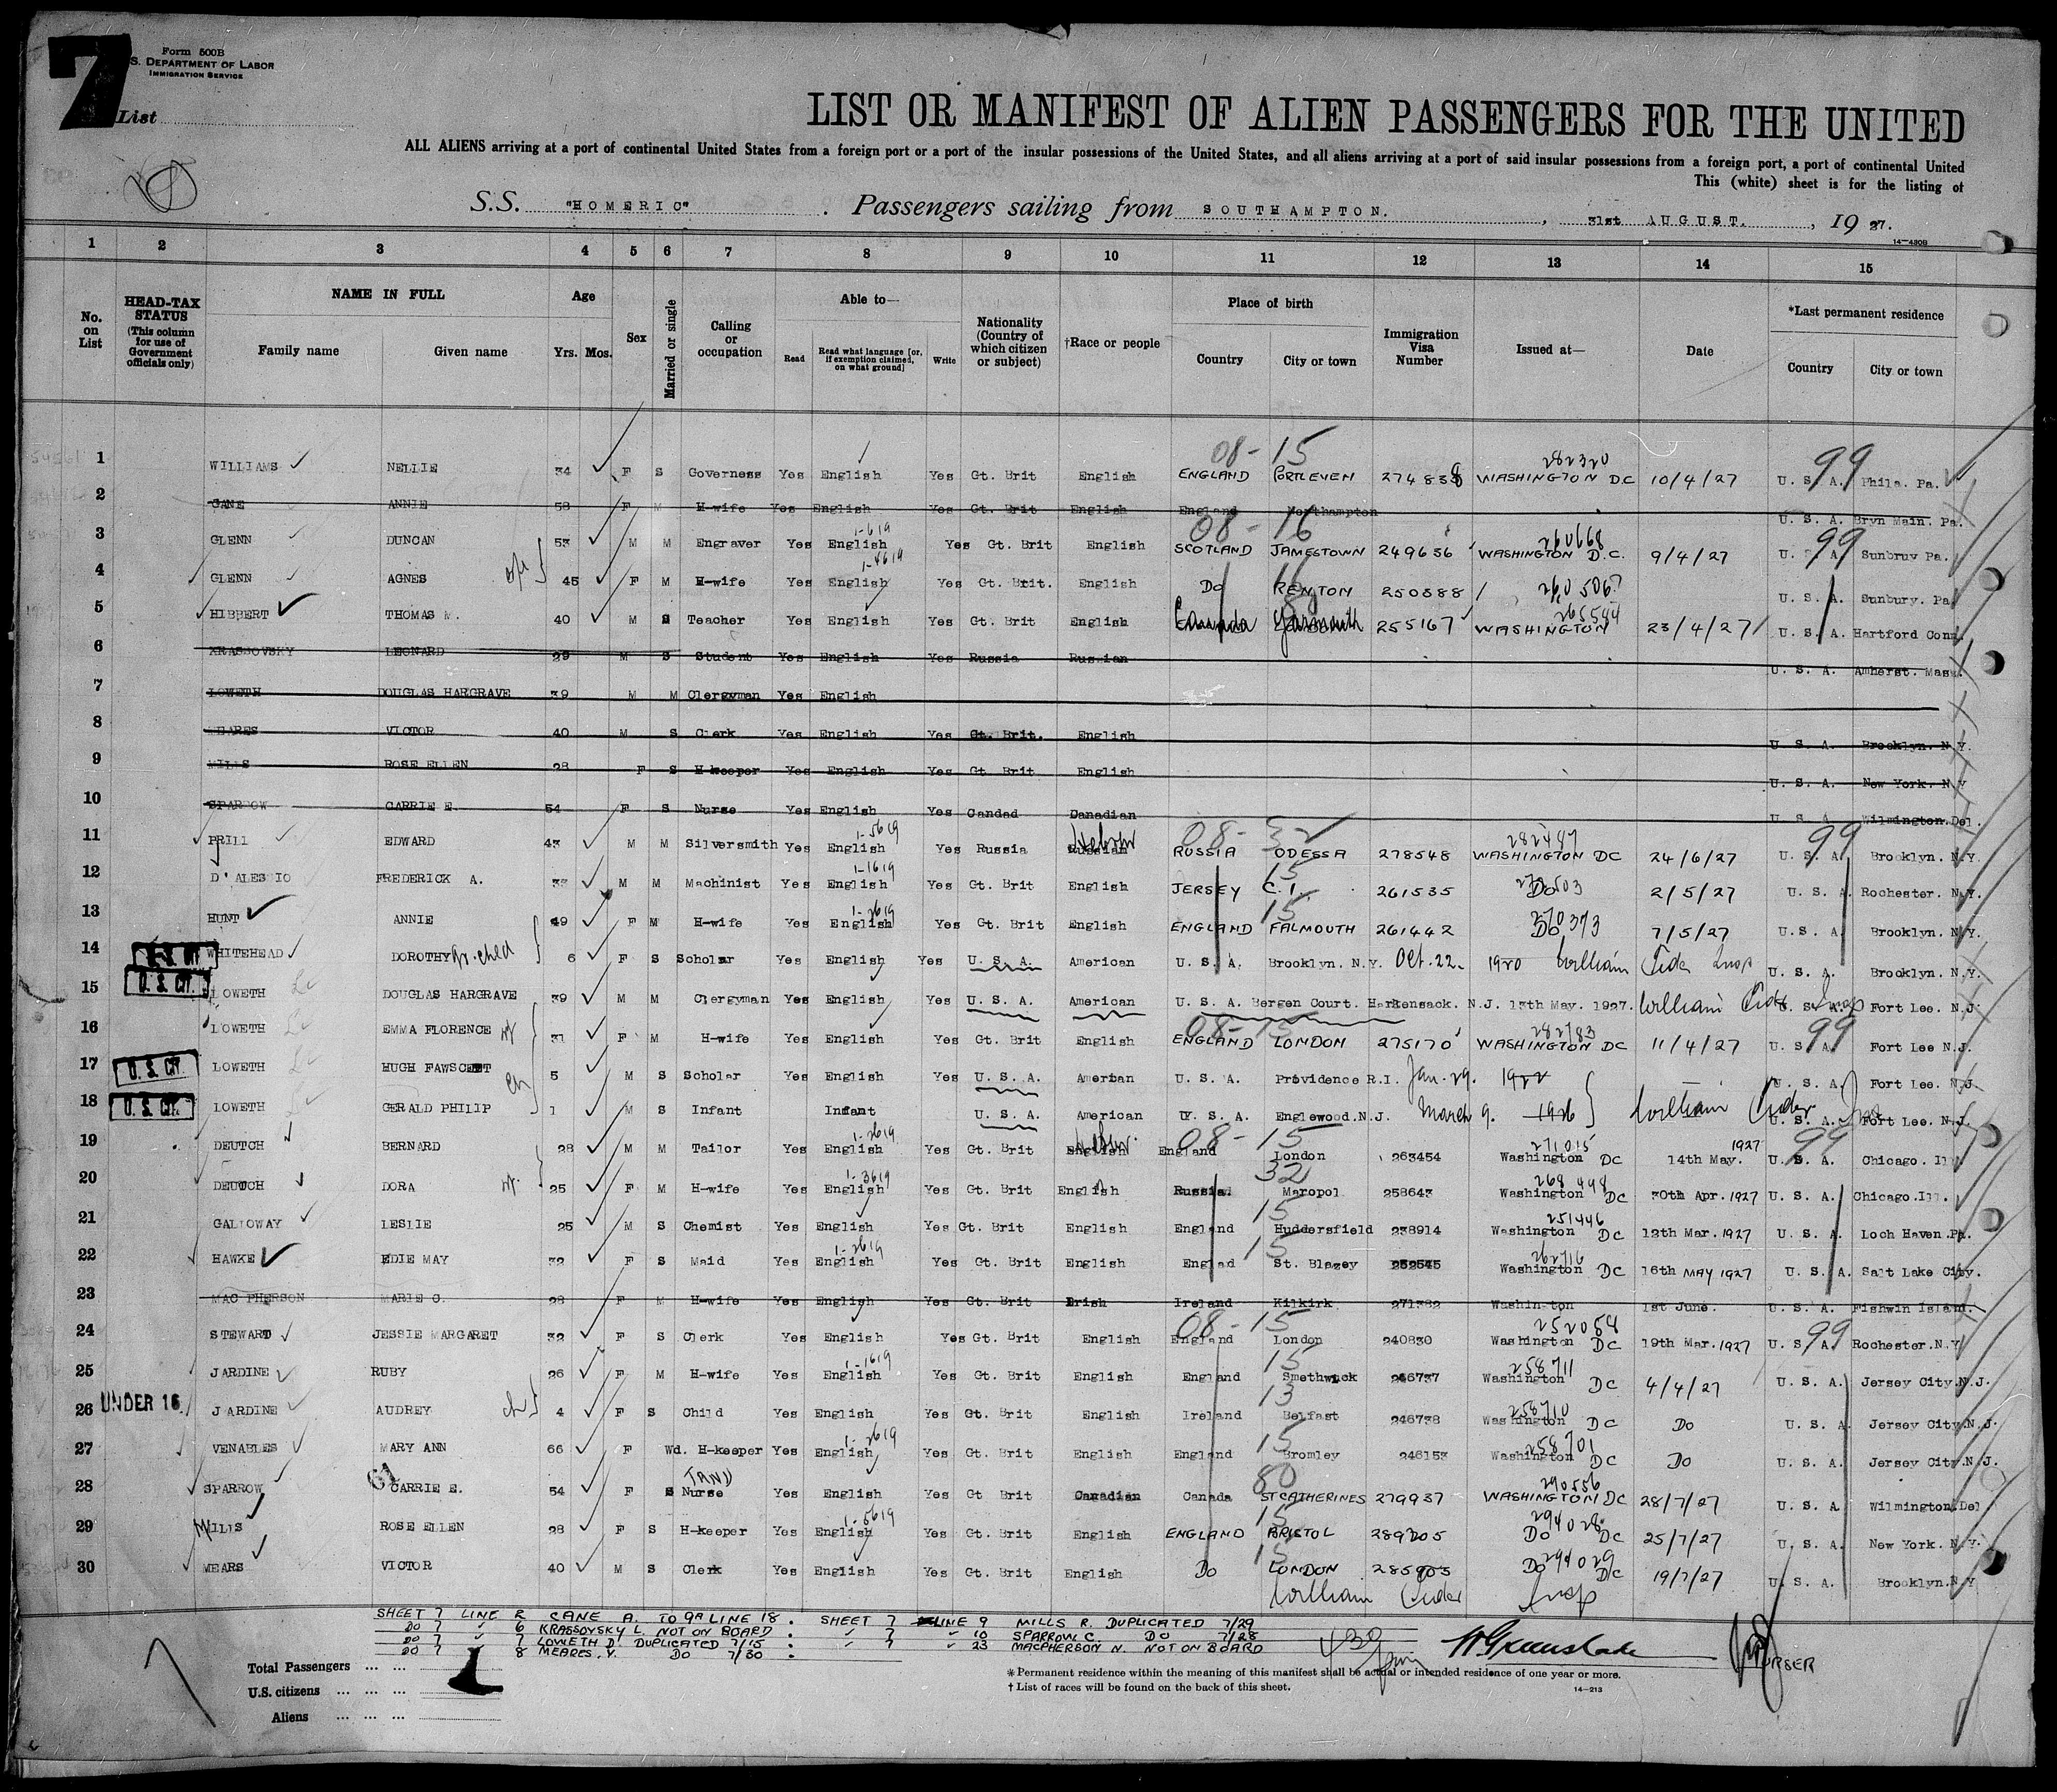 7
Form 500B
S. DEPARTMENT OF LABOR
IMMIGRATION SERVICE
List
LIST OR MANIFEST OF ALIEN PASSENGERS FOR THE UNITED
ALL ALIENS arriving at a port of continental United States from a foreign port or a port of the insular possessions of the United States, and all aliens arriving at a port of said insular possessions from a foreign port, a port of continental United
This (white) sheet is for the listing of
S.S. "HOMERIC" . Passengers sailing from SOUTHAMPTON. , 31st AUGUST. , 19 27.
14-430B
1 2 3 4 5 6 7 8 9 10 11 12 13 14 15
No. on List HEAD-TAX STATUS (This column for use of Government officials only) NAME IN FULL Family name Given name Age Yrs. Mos. Sex Married or single Calling or occupation Able to— Read Read what language [or, if exemption claimed, on what ground] Write Nationality (Country of which citizen or subject) †Race or people Place of birth Country City or town Immigration Visa Number Issued at— Date *Last permanent residence Country City or town
08-15 282320 99
1 WILLIAMS NELLIE 34 F S Governess Yes English Yes Gt. Brit English ENGLAND PORTLEVEN 274838 WASHINGTON DC 10/4/27 U. S. A. Phila. Pa.
2 CANE ANNIE 58 F M H-wife Yes English Yes Gt. Brit English England Northampton U. S. A. Bryn Main. Pa.
1-619 08-16 260668 99
3 GLENN DUNCAN 53 M M Engraver Yes English Yes Gt. Brit English SCOTLAND JAMESTOWN 249636 WASHINGTON D.C. 9/4/27 U. S. A. Sunbruy Pa.
1-4619 16
4 GLENN AGNES 45 F M H-wife Yes English Yes Gt. Brit. English Do RENTON 250388 U. S. A. Sunbury. Pa
265544
5 HIBBERT THOMAS M. 40 M S Teacher Yes English Yes Gt. Brit English Canada Yarmouth 255167 WASHINGTON 23/4/27 U. S. A. Hartford Conn.
6 KRASSOVSKY LEONARD 29 M S Student Yes English Yes Russia Russian U. S. A. Amherst. Mass.
7 LOWETH DOUGLAS HARGRAVE 39 M M Clergyman Yes English
8 MEARES VICTOR 40 M S Clerk Yes English Yes Gt. Brit. English U S A. Brooklyn. N Y.
9 MILLS ROSE ELLEN 28 F S H-keeper Yes English Yes Gt. Brit English U. S. A. New York. N Y
10 SPARROW CARRIE E. 54 F S Nurse Yes English Yes Candad Danadian U. S. A. Wilmington. Del.
1-5619 Hebrew 08-32 282487 99
11 PRILL EDWARD 43 M M Silversmith Yes English Yes Russia Russian RUSSIA ODESSA 278548 WASHINGTON DC 24/6/27 U. S. A. Brooklyn. N.Y.
1-1619 15
12 D'ALESSIO FREDERICK A. 33 M M Machinist Yes English Yes Gt. Brit English JERSEY C.I. 261535 Do 2/5/27 U. S. A. Rochester. N.Y.
1-2619 15 270373
13 HUNT ANNIE 49 F M H-wife Yes English Yes Gt. Brit English ENGLAND FALMOUTH 261442 Do 7/5/27 U.S. A. Brooklyn. N.Y.
14 U.S. CIT. WHITEHEAD DOROTHY gr. child 6 F S Scholar Yes English Yes U. S. A. American U. S. A. Brooklyn. N.Y. Oct. 22. 1920 William Insp U. S. A. Brooklyn. N.Y.
15 U. S. CIT. LOWETH DOUGLAS HARGRAVE 39 M M Clergyman Yes English Yes U. S. A. American U. S. A. Bergen Court. Harkensack. N.J. 13th May. 1927. William Insp U. S. A. Fort Lee. N.J
08-15 282783 99
16 LOWETH EMMA FLORENCE wf 31 F M H-wife Yes English Yes Gt. Brit English ENGLAND LONDON 275170 WASHINGTON DC 11/4/27 U. S A. Fort Lee N.J.
17 U. S. CIT. LOWETH HUGH FAWSCETT ch 5 M S Scholar Yes English Yes U. S. A. American U. S. A. Providence R.I. Jan. 29. 1922 U. S. A. Fort Lee. N.J.
18 U. S. CIT. LOWETH GERALD PHILIP 1 M S Infant Infant U. S. A. American U. S. A. Englewood.N.J. March 9. 1926 William Insp U. S. A. Fort Lee. N.J.
1-2619 Hebrew 08-15 271015 1927 99
19 DEUTCH BERNARD 28 M M Tailor Yes English Yes Gt. Brit English England London 263454 Washington DC 14th May. U. S. A. Chicago. Ill
1-3619 32 268498
20 DEUTCH DORA wf. 25 F M H-wife Yes English Yes Gt. Brit English Russia Maropol 258643 Washington DC 30th Apr. 1927 U. S. A. Chicago.Ill.
15 251446
21 GALLOWAY LESLIE 25 M S Chemist Yes English Yes Gt. Brit English England Huddersfield 238914 Washington DC 12th Mar. 1927 U. S. A. Loch Haven.Pa.
1-2619 15 262716
22 HAWKE EDIE MAY 32 F S Maid Yes English Yes Gt. Brit English Englad St. Blazey 252545 Washington DC 16th MAY 1927 U. S. A. Salt Lake City.
23 MAC PHERSON MARIE C. 28 F M H-wife Yes English Yes Gt. Brit Irish Ireland Kilkirk 271382 Washinton 1st June. U. S. A. Fishwin Island.
08-15 252054 99
24 STEWARD JESSIE MARGARET 32 F S Clerk Yes English Yes Gt. Brit English England London 240830 Washington DC 19th Mar. 1927 U. S. A. Rochester.N.Y
1-1619 15 258711
25 JARDINE RUBY 26 F M H-wife Yes English Yes Gt. Brit English England Smethwick 246737 Washington DC 4/4/27 U. S. A. Jersey City.N.J.
13 258710
26 UNDER 16. JARDINE AUDREY ch 4 F S Child Yes English Yes Gt. Brit English Ireland Belfast 246738 Washington DC Do U. S. A. Jersey City.N.J.
1-2619 15 258701
27 VENABLES MARY ANN 66 F Wd. H-keeper Yes English Yes Gt. Brit English England Bromley 246153 Washington DC Do U. S. A. Jersey City.N.J.
61 80 290556
28 SPARROW CARRIE E. 54 F S Nurse Yes English Yes Gt Brit Canadian Canada ST CATHERINES 279937 WASHINGTON DC 28/7/27 U. S. A Wilmington.Del
1-5619 15 294028
29 MILLS ROSE ELLEN 28 F S H-keeper Yes English Yes Gt. Brit English ENGLAND BRISTOL 289205 Do DC 25/7/27 U. S. A. New York. N.Y.
15 294029
30 MEARS VICTOR 40 M S Clerk Yes English Yes Gt. Brit English Do LONDON 285903 Do D/C 19/7/27 U. S. A. Brooklyn.N Y
William Insp
SHEET 7 LINE 2 CANE A. TO 9A LINE 18 . SHEET 7 LINE 9 MILLS R. DUPLICATED 7/29
DO 7 6 KRASSOVSKY L. NOT ON BOARD . 7 10 SPARROW C DO 7/28
DO 7 7 LOWETH D. DUPLICATED 7/15 . 7 23 MACPHERSON N. NOT ON BOARD
DO 7 8 MEARES. V. DO 7/30
PURSER
Total Passengers ... ...
U.S. citizens ... ... ...
Aliens ... ... ...
* Permanent residence within the meaning of this manifest shall be actual or intended residence of one year or more.
† List of races will be found on the back of this sheet.
14-213